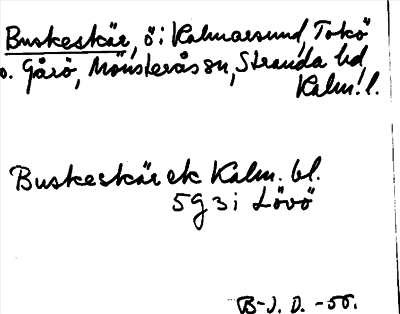 Buskeskär, ö i Kalmarsund, Tokö
o. Gårö, Mönsterås sn, Stranda hd
Kalm. l.
Buskeskär ek Kalm. bl.
5g3i Lövö
B-J. D. -55.